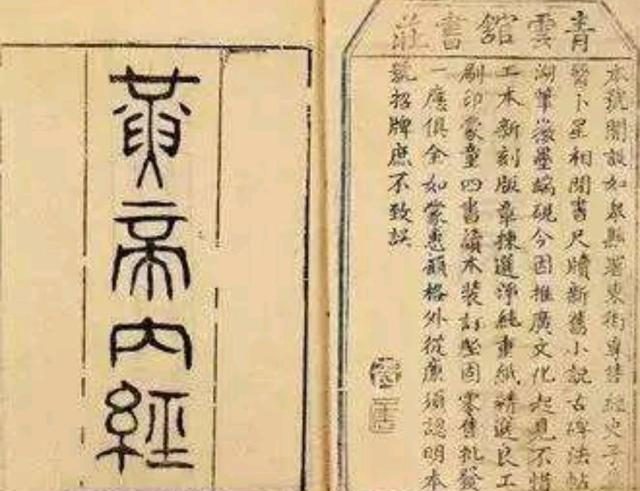 青雲館書莊
本號開設如皋縣署東街專售經史子
醫卜星相閒書尺牘新舊小說古碑法帖
湖筆徽墨端硯今因推廣文化起見不惜
工本新刻版章揀選淨純重紙請選良工
刷印蒙童四書讀本裝訂堅固零售批發
一應俱全如蒙惠顧格外從廉須認明本
號招牌庶不致誤
黃帝內經